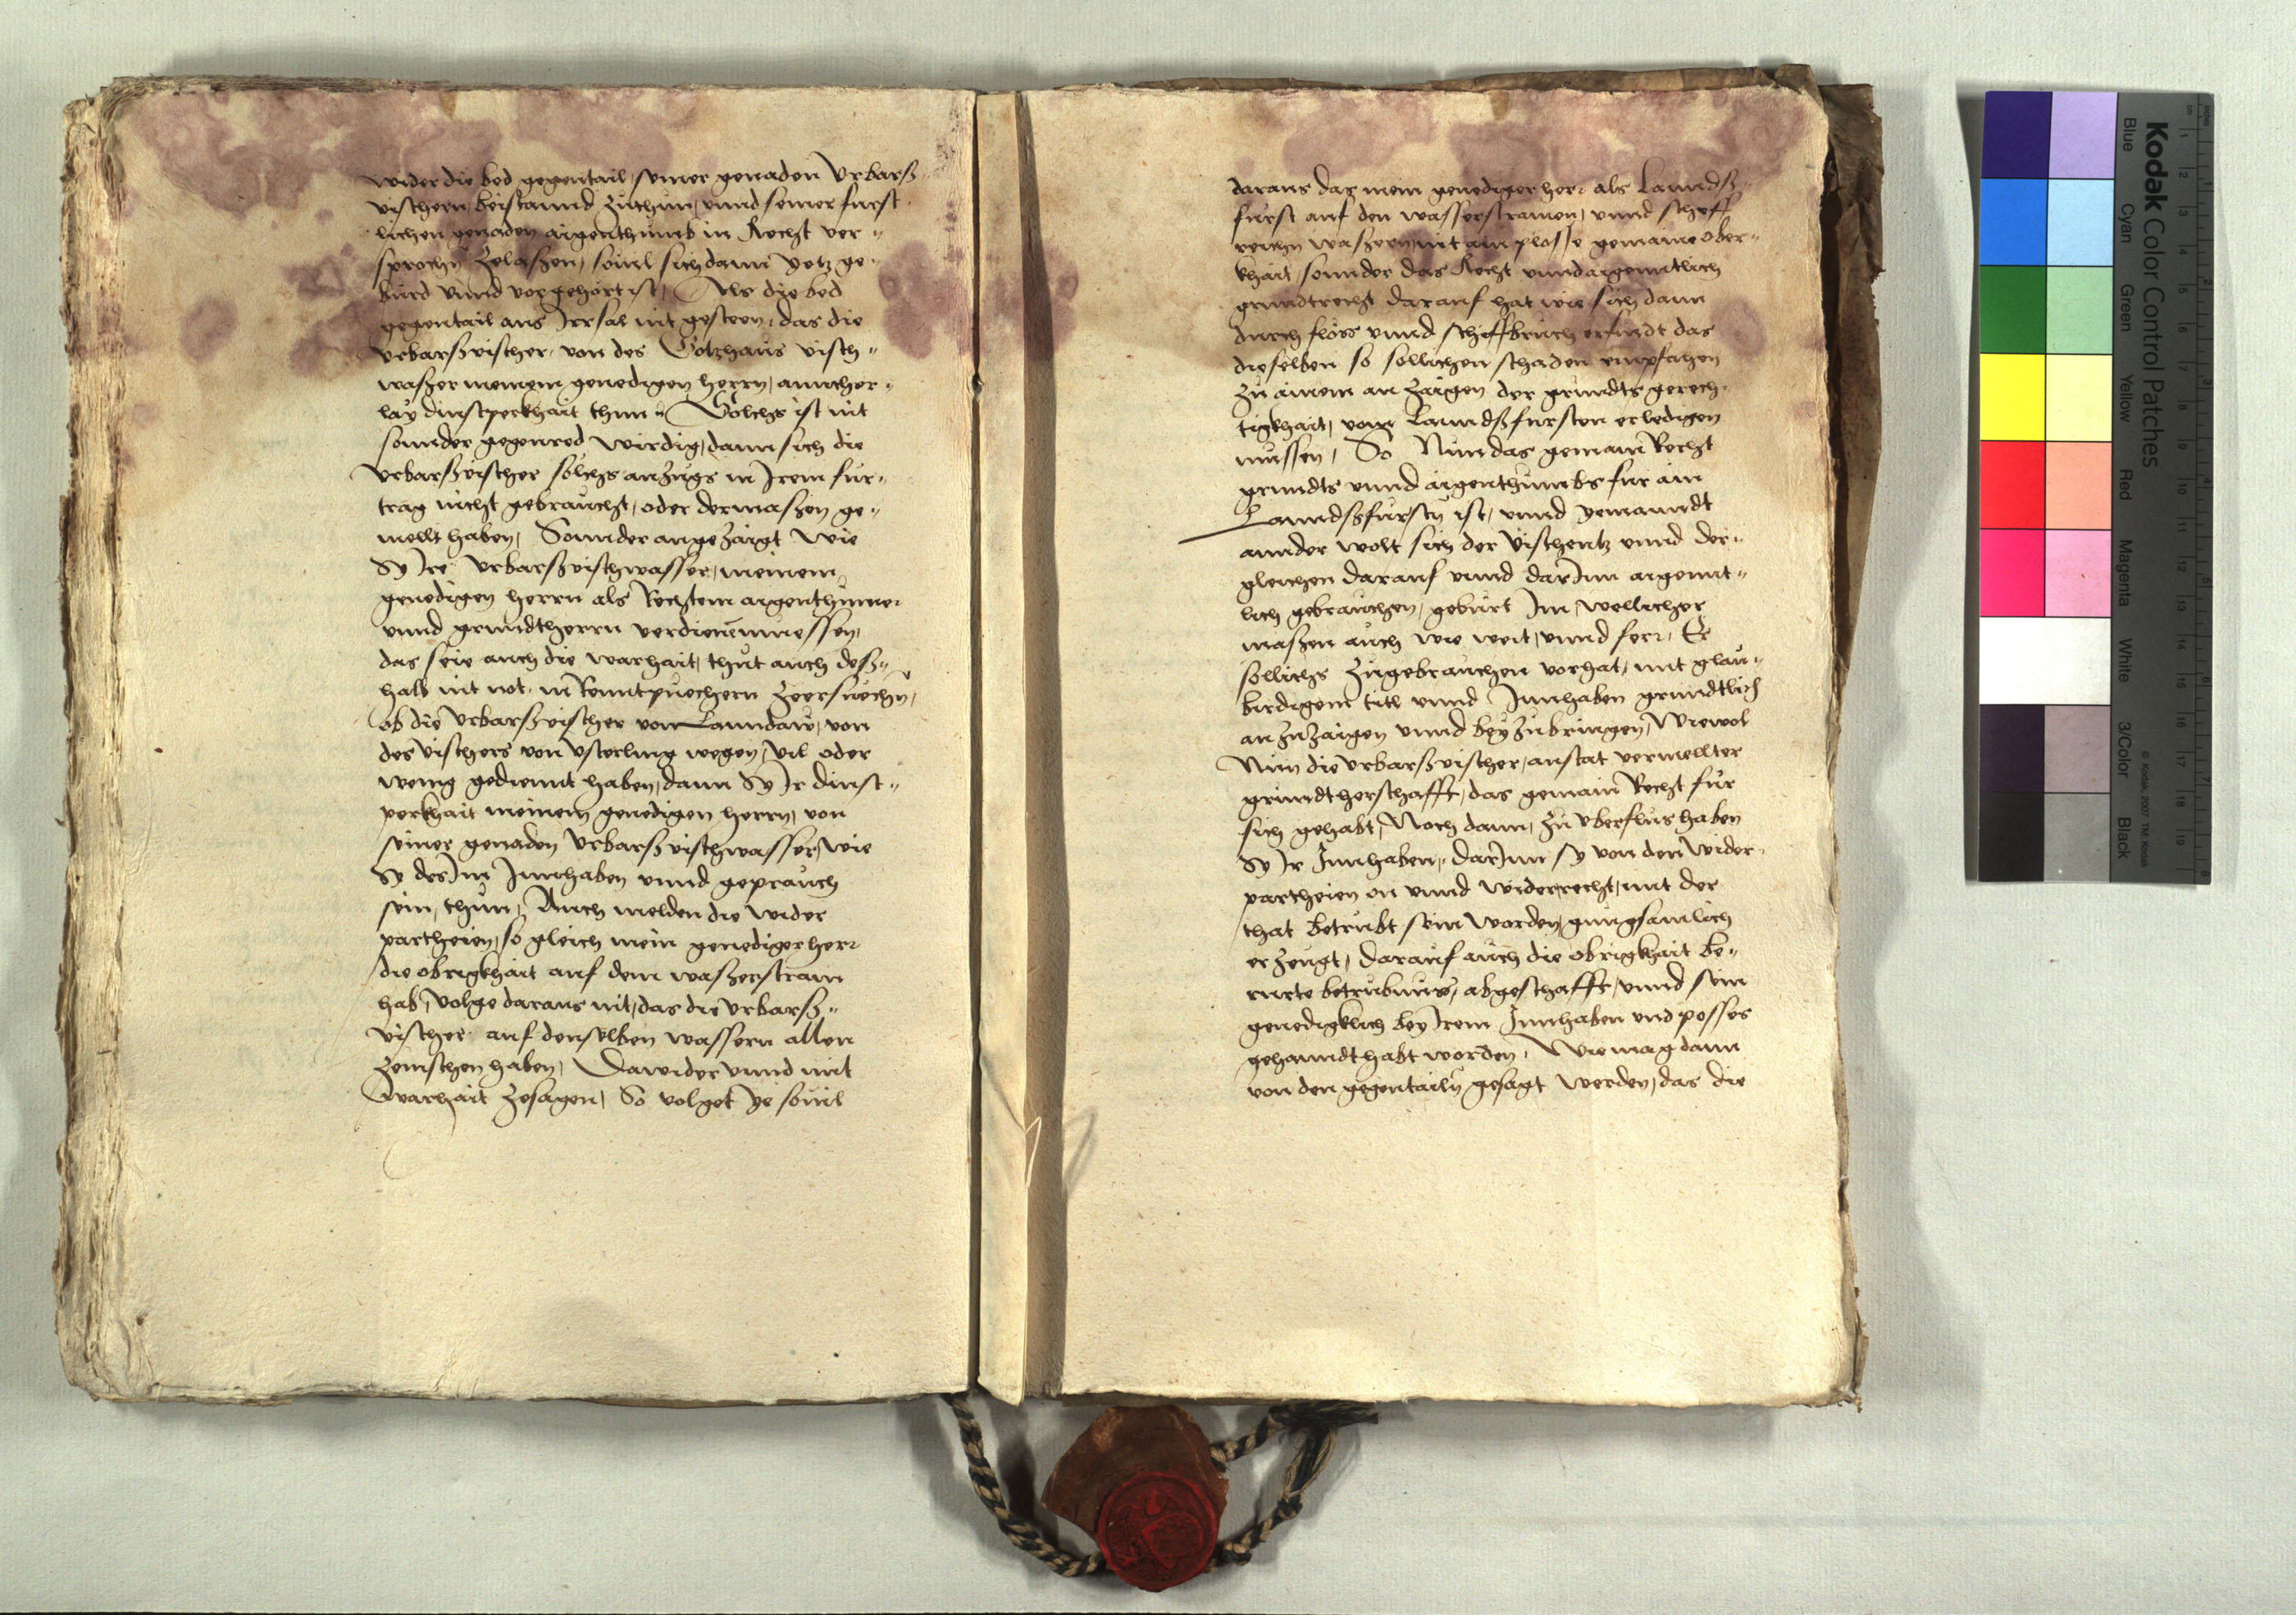 wider die bed gegentail, seiner genaden Vrbarß
vischern, beistannd zuthun, vnnd seiner furst
lichen genaden aigenthumb in Recht ver-
sprochn zelassen, souil sich dann yetz ge-
burd vnnd vorgehort ist, Als die bed
gegentail ans Irrsal nit gesteen, das die
vrbarßvischer, von des Gotzhaus visch-
wasser meinem genedigen herrn, ainicher-
lay dinstperkhait thun, Solchs ist nit
sonnder gegenred wirdig, dann sich die
vrbarßvischer solchs anzugs in Irem fur-
trag nicht gebraucht, oder dermassen ge-
mellt haben, Sonnder angezaigt wie
Sy Ire vrbarßvischwasser, meinem
genedigen herrn als Rechtem aigenthumer
vnnd grundtherrn verdienen muessen,
das seie auch die warhait, thut auch deß-
halb nit not, in Renntpuechern zeersuechn,
ob die vrbarßvischer von Lanndaw, von
des vischers von Vsterling wegen, vil oder
wenig gediennt haben, dann Sy Ir dinst-
perkhait meinem genedigen herrn, von
seiner genaden vrbarßvischwasser, wie
Sy des Im Innhaben vnnd geprauch
sein, thun, Auch melden die wider
partheien, so gleich mein genediger herr
die obrigkhait auf dem wasserstram
hab, volge daraus nit, das die vrbarß-
vischer auf denselben wassern allen
zevischen haben, Dawider vnnd mit
warhait zesagen, So volget ye souil
daraus das mein genediger herr als Lanndß-
furst auf den wasserstramen, vnnd scheff
reichn wassern, nit ain plosse gemaine ober-
khait, sonnder das Recht vnnd aigenntlich
grundtrecht darauf hat wie sich dann
durch floss vnnd schiffbruch erfindt das
dieselben so sollichen schaden empfahen
zu ainem anzaigen der grundts gerech-
tigkhait, vom Lanndßfursten erledigen
muessen, So Nun das gemain Recht
grundts vnnd aigenthumbs fur ain
Lanndßfurstn ist, vnnd yemanndt
annder wolt sich der vischentz vnnd der-
gleichen darauf vnnd darInn aigennt-
lich gebrauchen, geburt Im, wellicher
massen auch wie weit, vnnd ferr, Er
sollichs zugebrauchen vorhat, mit glau-
birdigem titl vnnd Innhaben grundtlich
anzuzaigen vnnd beyzubringen, Wiewol
Nun die vrbarßvischer, anstat vermellter
grundtherschafft, das gemain Recht fur
sich gehabt, Noch dann, zu vberflus haben
Sy Ir Innhaben, darInn sy von den wider-
partheien on vnnd widerrecht, mit der
that betrubt sein worden, gnugsamlich
erzeugt, darauf auch die obrigkhait be-
rurte betrubnus, abgeschafft, vnnd sein
genedigklich bey Irem Innhaben vnd posses
gehanndthabt worden, Wie mag dann
von den gegentailn gesagt werden, das die
Kodak Color Control Patches
Blue Cyan Green Yellow Red Magenta White 3/Color Black
© Kodak, 2007 TM: Kodak